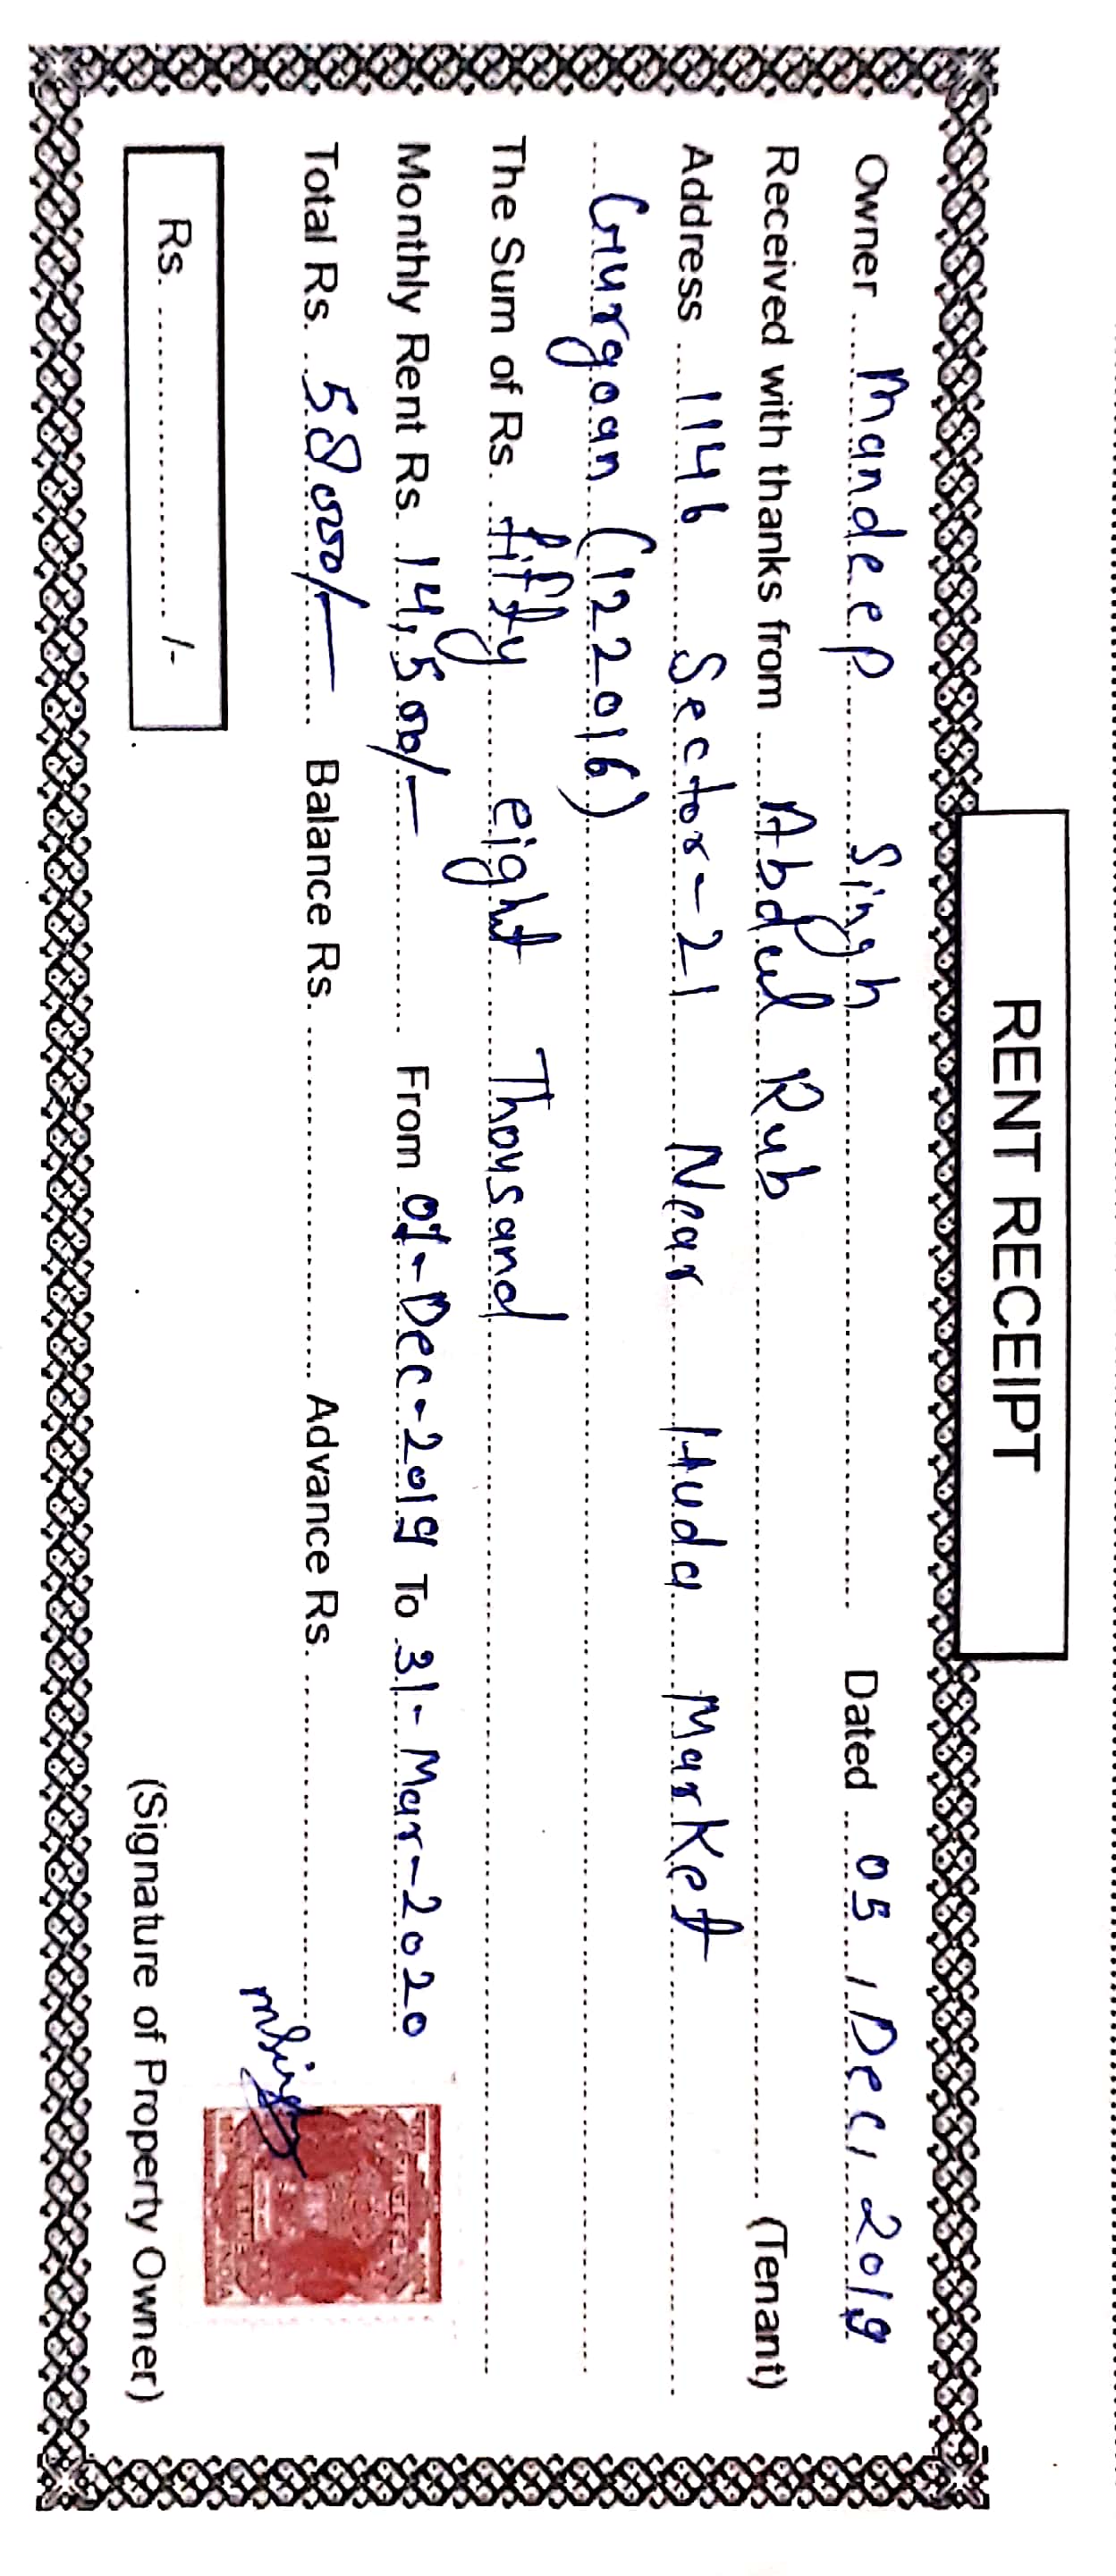 RENT RECEIPT
Owner Mandeep Singh Dated 05 / Dec / 2019
Received with thanks from Abdul Rub (Tenant)
Address 1146 Sector-21 Near Huda Market
Gurgoan (122016)
The Sum of Rs. fifty eight Thousand
Monthly Rent Rs. 14,500/- From 01-Dec-2019 To 31-Mar-2020
Total Rs. 58000/- Balance Rs. Advance Rs.
MSingh
Rs. /-
(Signature of Property Owner)